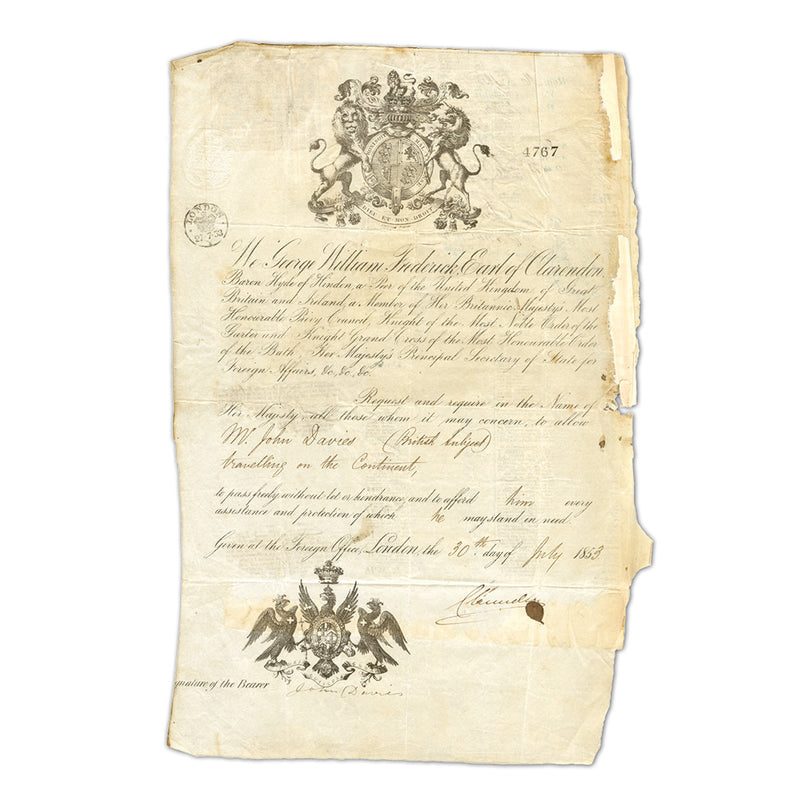 4767
DIEU ET MON DROIT
LONDON
We George William Frederick, Earl of Clarendon,
Baron Hyde of Hindon, a Peer of the United Kingdom of Great
Britain and Ireland, a Member of Her Britannic Majesty's Most
Honourable Privy Council, Knight of the Most Noble Order of the
Garter and Knight Grand Cross of the Most Honourable Order
of the Bath, Her Majesty's Principal Secretary of State for
Foreign Affairs, &c. &c. &c.
Request and require in the Name of
Her Majesty, all those whom it may concern, to allow
Mr. John Davies (British Subject)
travelling on the Continent,
to pass freely without let or hindrance, and to afford him every
assistance and protection of which he may stand in need.
Given at the Foreign Office, London, the 30th day of July 1853
Clarendon
gnature of the Bearer John Davies